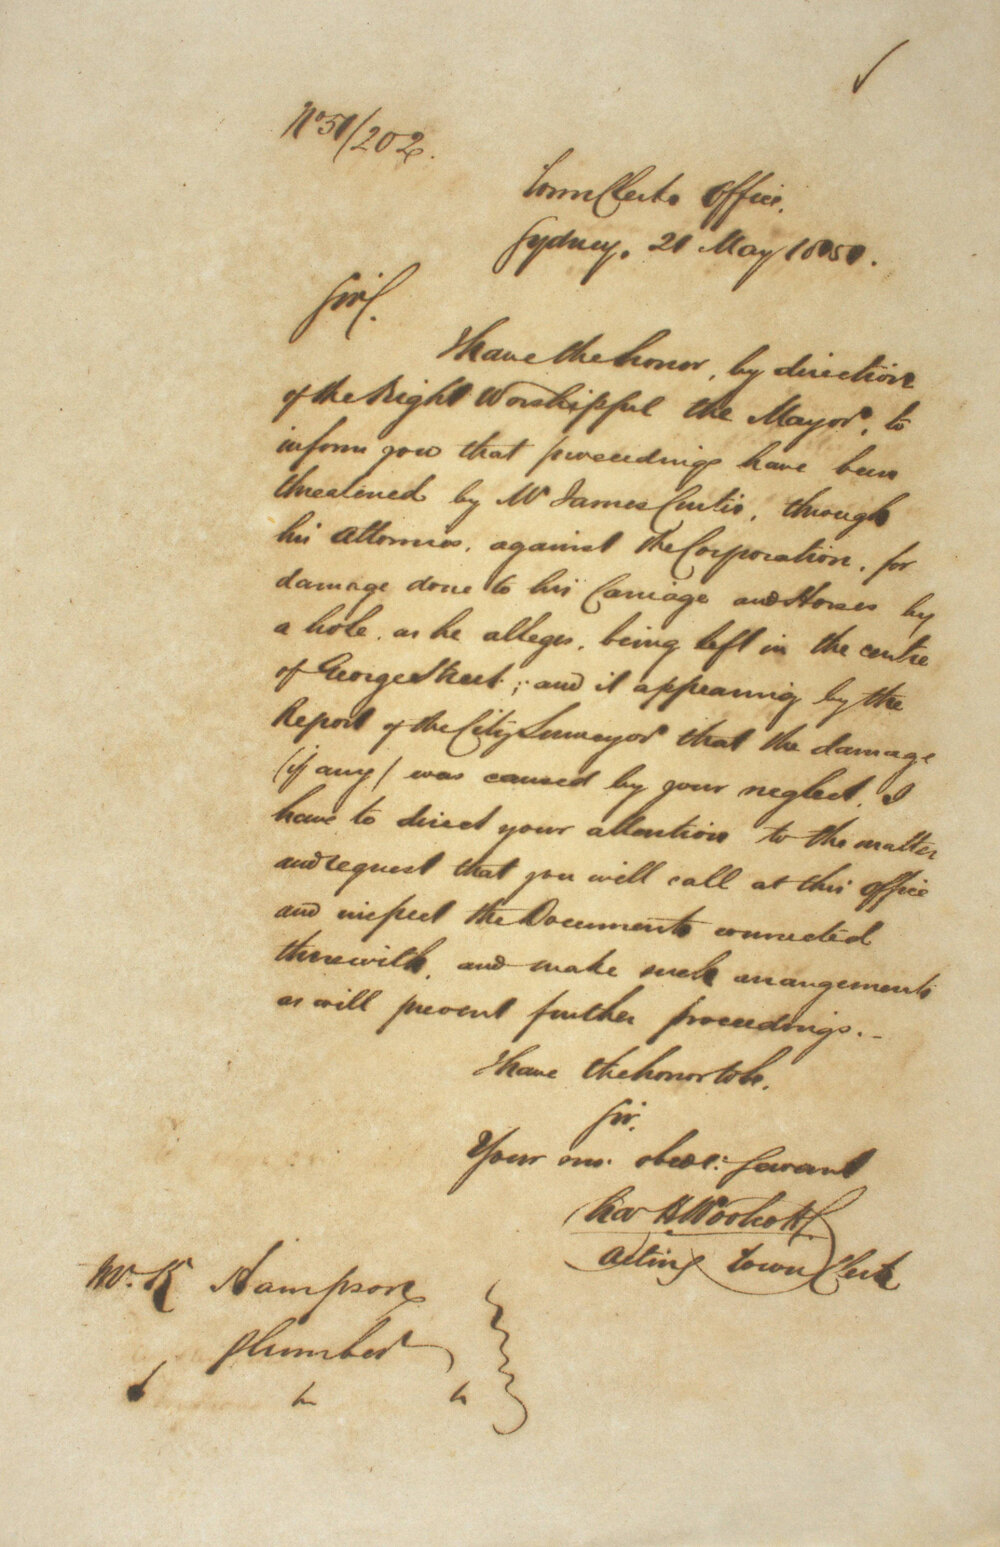 No 51/202.
Town Clerks Office.
Sydney, 21 May 1851.
Sir,
I have the honor, by direction
of the Right Worshipful the Mayor, to
inform you that proceedings have been
threatened by Mr James Curtis, through
his Attornies, against the Corporation, for
damage done to his Carriage and Horses by
a hole, as he alleges, being left in the centre
of George Street; and it appearing by the
Report of the City Surveyor that the damage
(if any) was caused by your neglect, I
have to direct your attention to the matter
and request that you will call at this office
and inspect the Documents connected
therewith, and make such arrangements
as will prevent further proceedings.-
I have the honor to be,
Sir,
Your mo. obedt: Servant
Chas H Woolcott
Acting Town Clerk
Mr. K Hampson
Plumber